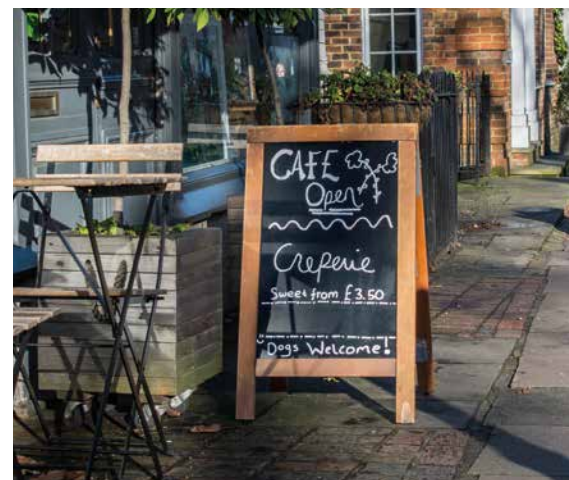 CAFE
Open
Creperie
Sweet from £3.50
Dogs Welcome!